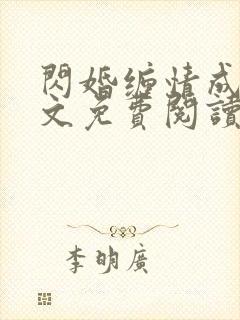 閃婚纏情成
文免費閱讀
李明廣